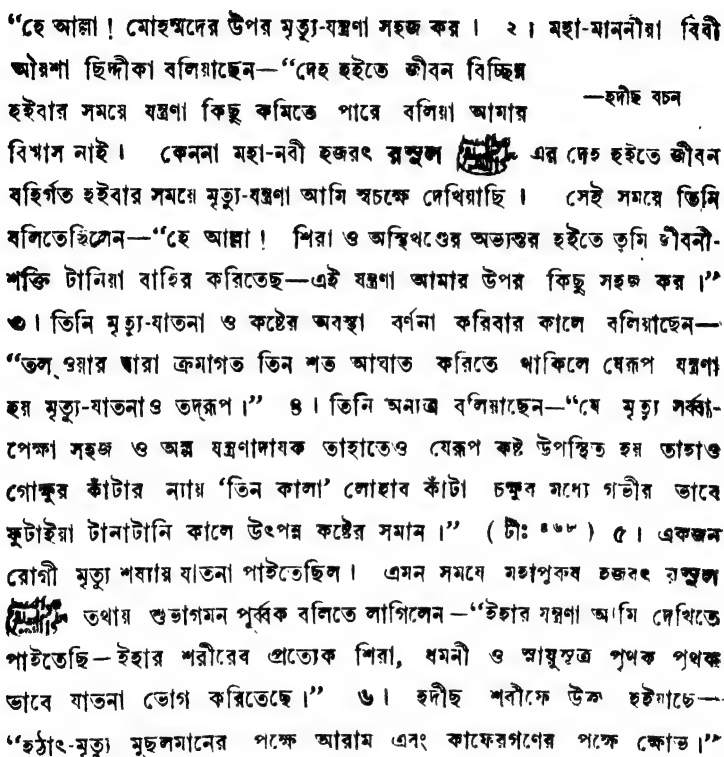 “হে আল্লা ! মোহম্মদের উপর মৃত্যু-যন্ত্রণা সহজ কর । ২ । মহা-মাননীয়া বিবী
আয়শা ছিদ্দীকা বলিয়াছেন—“দেহ হইতে জীবন বিচ্ছিন্ন
হইবার সময়ে যন্ত্রণা কিছু কমিতে পারে বলিয়া আমার —হদীছ বচন
বিশ্বাস নাই । কেননা মহা-নবী হজরৎ রসূল এর দেহ হইতে জীবন
বহির্গত হইবার সময়ে মৃত্যু-যন্ত্রণা আমি স্বচক্ষে দেখিয়াছি । সেই সময়ে তিনি
বলিতেছিলেন—“হে আল্লা ! শিরা ও অস্থিখণ্ডের অভ্যন্তর হইতে তুমি জীবনী-
শক্তি টানিয়া বাহির করিতেছ—এই যন্ত্রণা আমার উপর কিছু সহজ কর ।”
৩ । তিনি মৃত্যু-যাতনা ও কষ্টের অবস্থা বর্ণনা করিবার কালে বলিয়াছেন—
“তল্ওয়ার দ্বারা ক্রমাগত তিন শত আঘাত করিতে থাকিলে যেরূপ যন্ত্রণা
হয় মৃত্যু-যাতনাও তদ্‌রূপ ।” ৪ । তিনি অন্যত্র বলিয়াছেন—“যে মৃত্যু সর্ব্বা-
পেক্ষা সহজ ও অল্প যন্ত্রণাদায়ক তাহাতেও যেরূপ কষ্ট উপস্থিত হয় তাহাও
গোক্ষুর কাঁটার ন্যায় ‘তিন কালা’ লোহার কাঁটা চক্ষুর মধ্যে গভীর ভাবে
ফুটাইয়া টানাটানি কালে উৎপন্ন কষ্টের সমান ।” ( টীঃ ৪৬৮ ) ৫ । একজন
রোগী মৃত্যু শয্যায় যাতনা পাইতেছিল । এমন সময়ে মহাপুরুষ হজরৎ রসূল
তথায় শুভাগমন পূর্ব্বক বলিতে লাগিলেন—“ইহার যন্ত্রণা আমি দেখিতে
পাইতেছি—ইহার শরীরের প্রত্যেক শিরা, ধমনী ও স্নায়ুসূত্র পৃথক পৃথক
ভাবে যাতনা ভোগ করিতেছে ।” ৬ । হদীছ শরীফে উক্ত হইয়াছে—
“হঠাৎ-মৃত্যু মুছলমানের পক্ষে আরাম এবং কাফেরগণের পক্ষে ক্ষোভ ।”